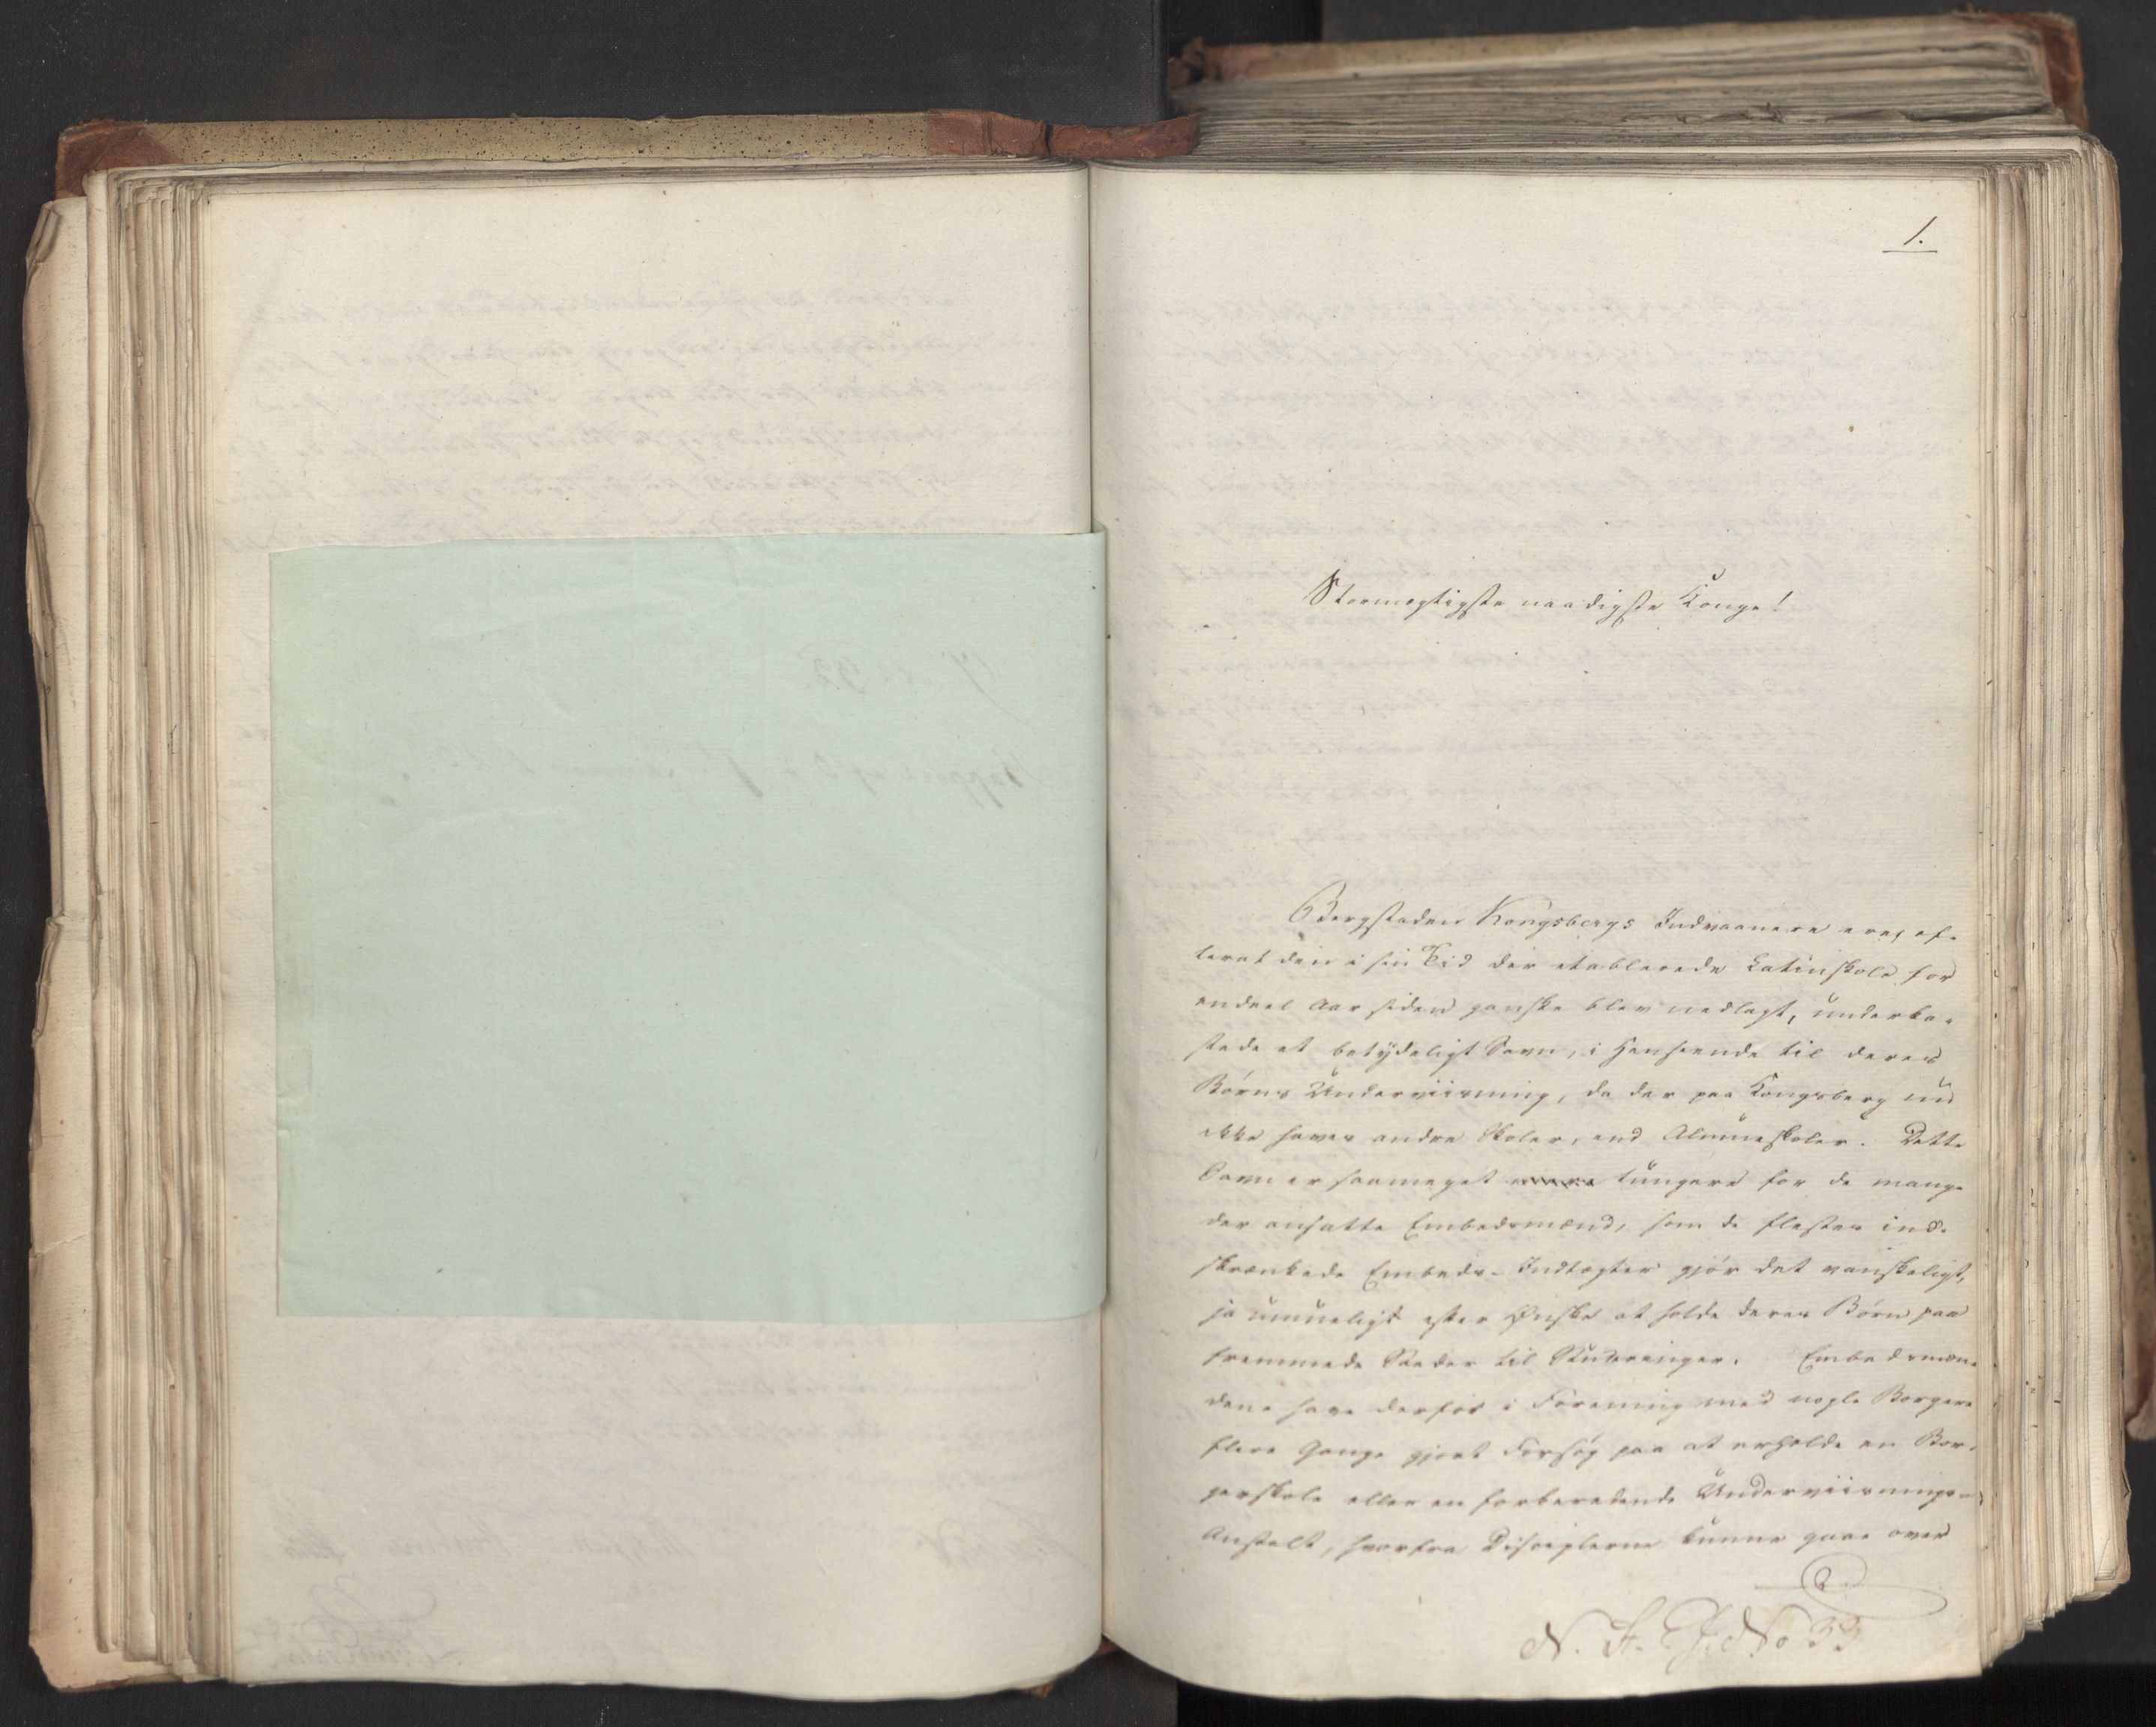 1.
Stormægtigste naadigste Konge!
Bergstaden Kongsbergs Indvaanere ere, ef-
terat den i sin Tid der etablerede Latinskole for
endeel Aar siden ganske blev nedlagt, underka-
stede et betydeligt Savn, i Henseende til deres
Børns Underviisning, da der paa Kongsberg nu
ikke haves andre Skoler, end Almueskoler. Dette
Savn er saameget tungere for de mange
der ansatte Embedsmænd, som de flestes ind-
skrænkede Embeds-Indtægter gjør det vanskeligt,
ja umueligt efter Ønske at holde deres Børn paa
fremmede Steder til Studeringer. Embedsmæn-
dene have derfor i Forening med nogle Borgere
flere Gange gjort Forsøg paa at erholde en Bor-
gerskole eller en forberedende Underviisnings-
Anstalt, hvorfra Disciplerne kunne gaae over
N. St. J. No 33